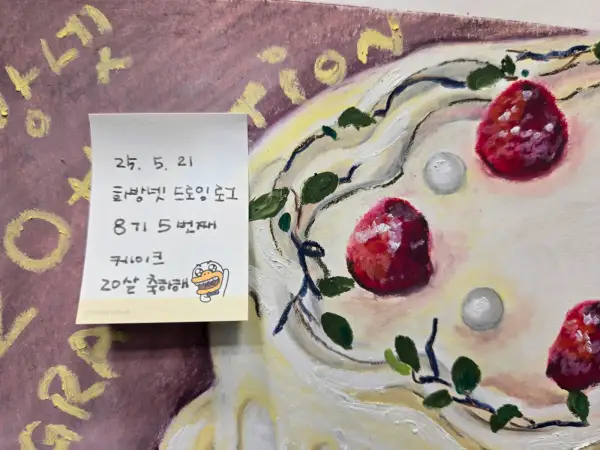 25. 5. 21
화방넷 드로잉로그
8기 5번째
케이크
20살 축하해
방넷
TION
GRA